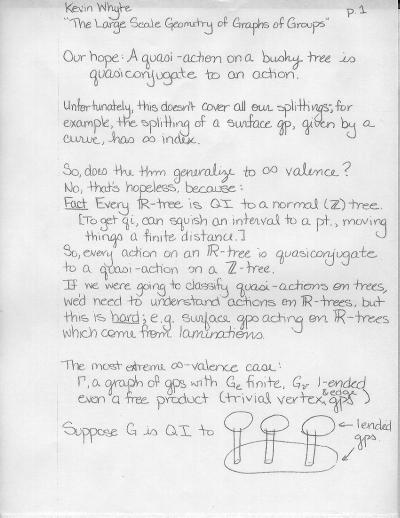 Kevin Whyte p. 1
"The Large Scale Geometry of Graphs of Groups"
Our hope: A quasi-action on a bushy tree is
quasiconjugate to an action.
Unfortunately, this doesn't cover all our splittings; for
example, the splitting of a surface gp, given by a
curve, has ∞ index.
So, does the thm generalize to ∞ valence?
No, that's hopeless, because:
Fact Every ℝ-tree is QI to a normal (ℤ) tree.
[To get qi, can squish an interval to a pt., moving
things a finite distance.]
So, every action on an ℝ-tree is quasiconjugate
to a quasi-action on a ℤ-tree.
If we were going to classify quasi-actions on trees,
we'd need to understand actions on ℝ-trees, but
this is hard; e.g. surface gps acting on ℝ-trees
which come from laminations.
The most extreme ∞-valence case:
Γ, a graph of gps with Ge finite, Gv 1-ended
even a free product (trivial vertex & edge gps)
Suppose G is QI to
← 1ended
gps.